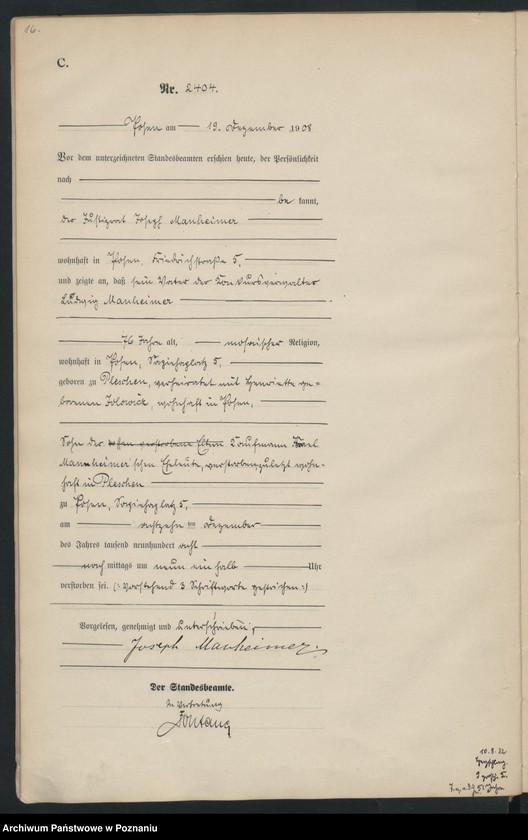 16.
C.
Nr. 2404.
Posen am 19. Dezember 1908
Vor dem unterzeichneten Standesbeamten erschien heute, der Persönlichkeit
nach
be kannt,
der Justizrat Joseph Manheimer
wohnhaft in Posen, Friedrichstraße 5,
und zeigte an, daß sein Vater der Konkursverwalter
Ludwig Manheimer
76 Jahre alt, mosaischer Religion,
wohnhaft in Posen, Sapiehaplatz 5,
geboren zu Pleschen, verheiratet mit Henriette ge-
borenen Jolowicz, wohnhaft in Posen,
Sohn der verstorbene Eltern Kaufmann
Manheimer'schen Eheleute, verstorben zuletzt wohn-
haft in Pleschen
zu Posen, Sapiehaplatz 5,
am achtzehn ten Dezember
des Jahres tausend neunhundert acht
nach mittags um neun ein halb Uhr
verstorben sei. (: Vorstehend 3 Schriftworte gestrichen :)
Vorgelesen, genehmigt und unterschrieben,
Joseph Manheimer.
Der Standesbeamte.
In Vertretung
10. 8. 22
Archiwum Państwowe w Poznaniu